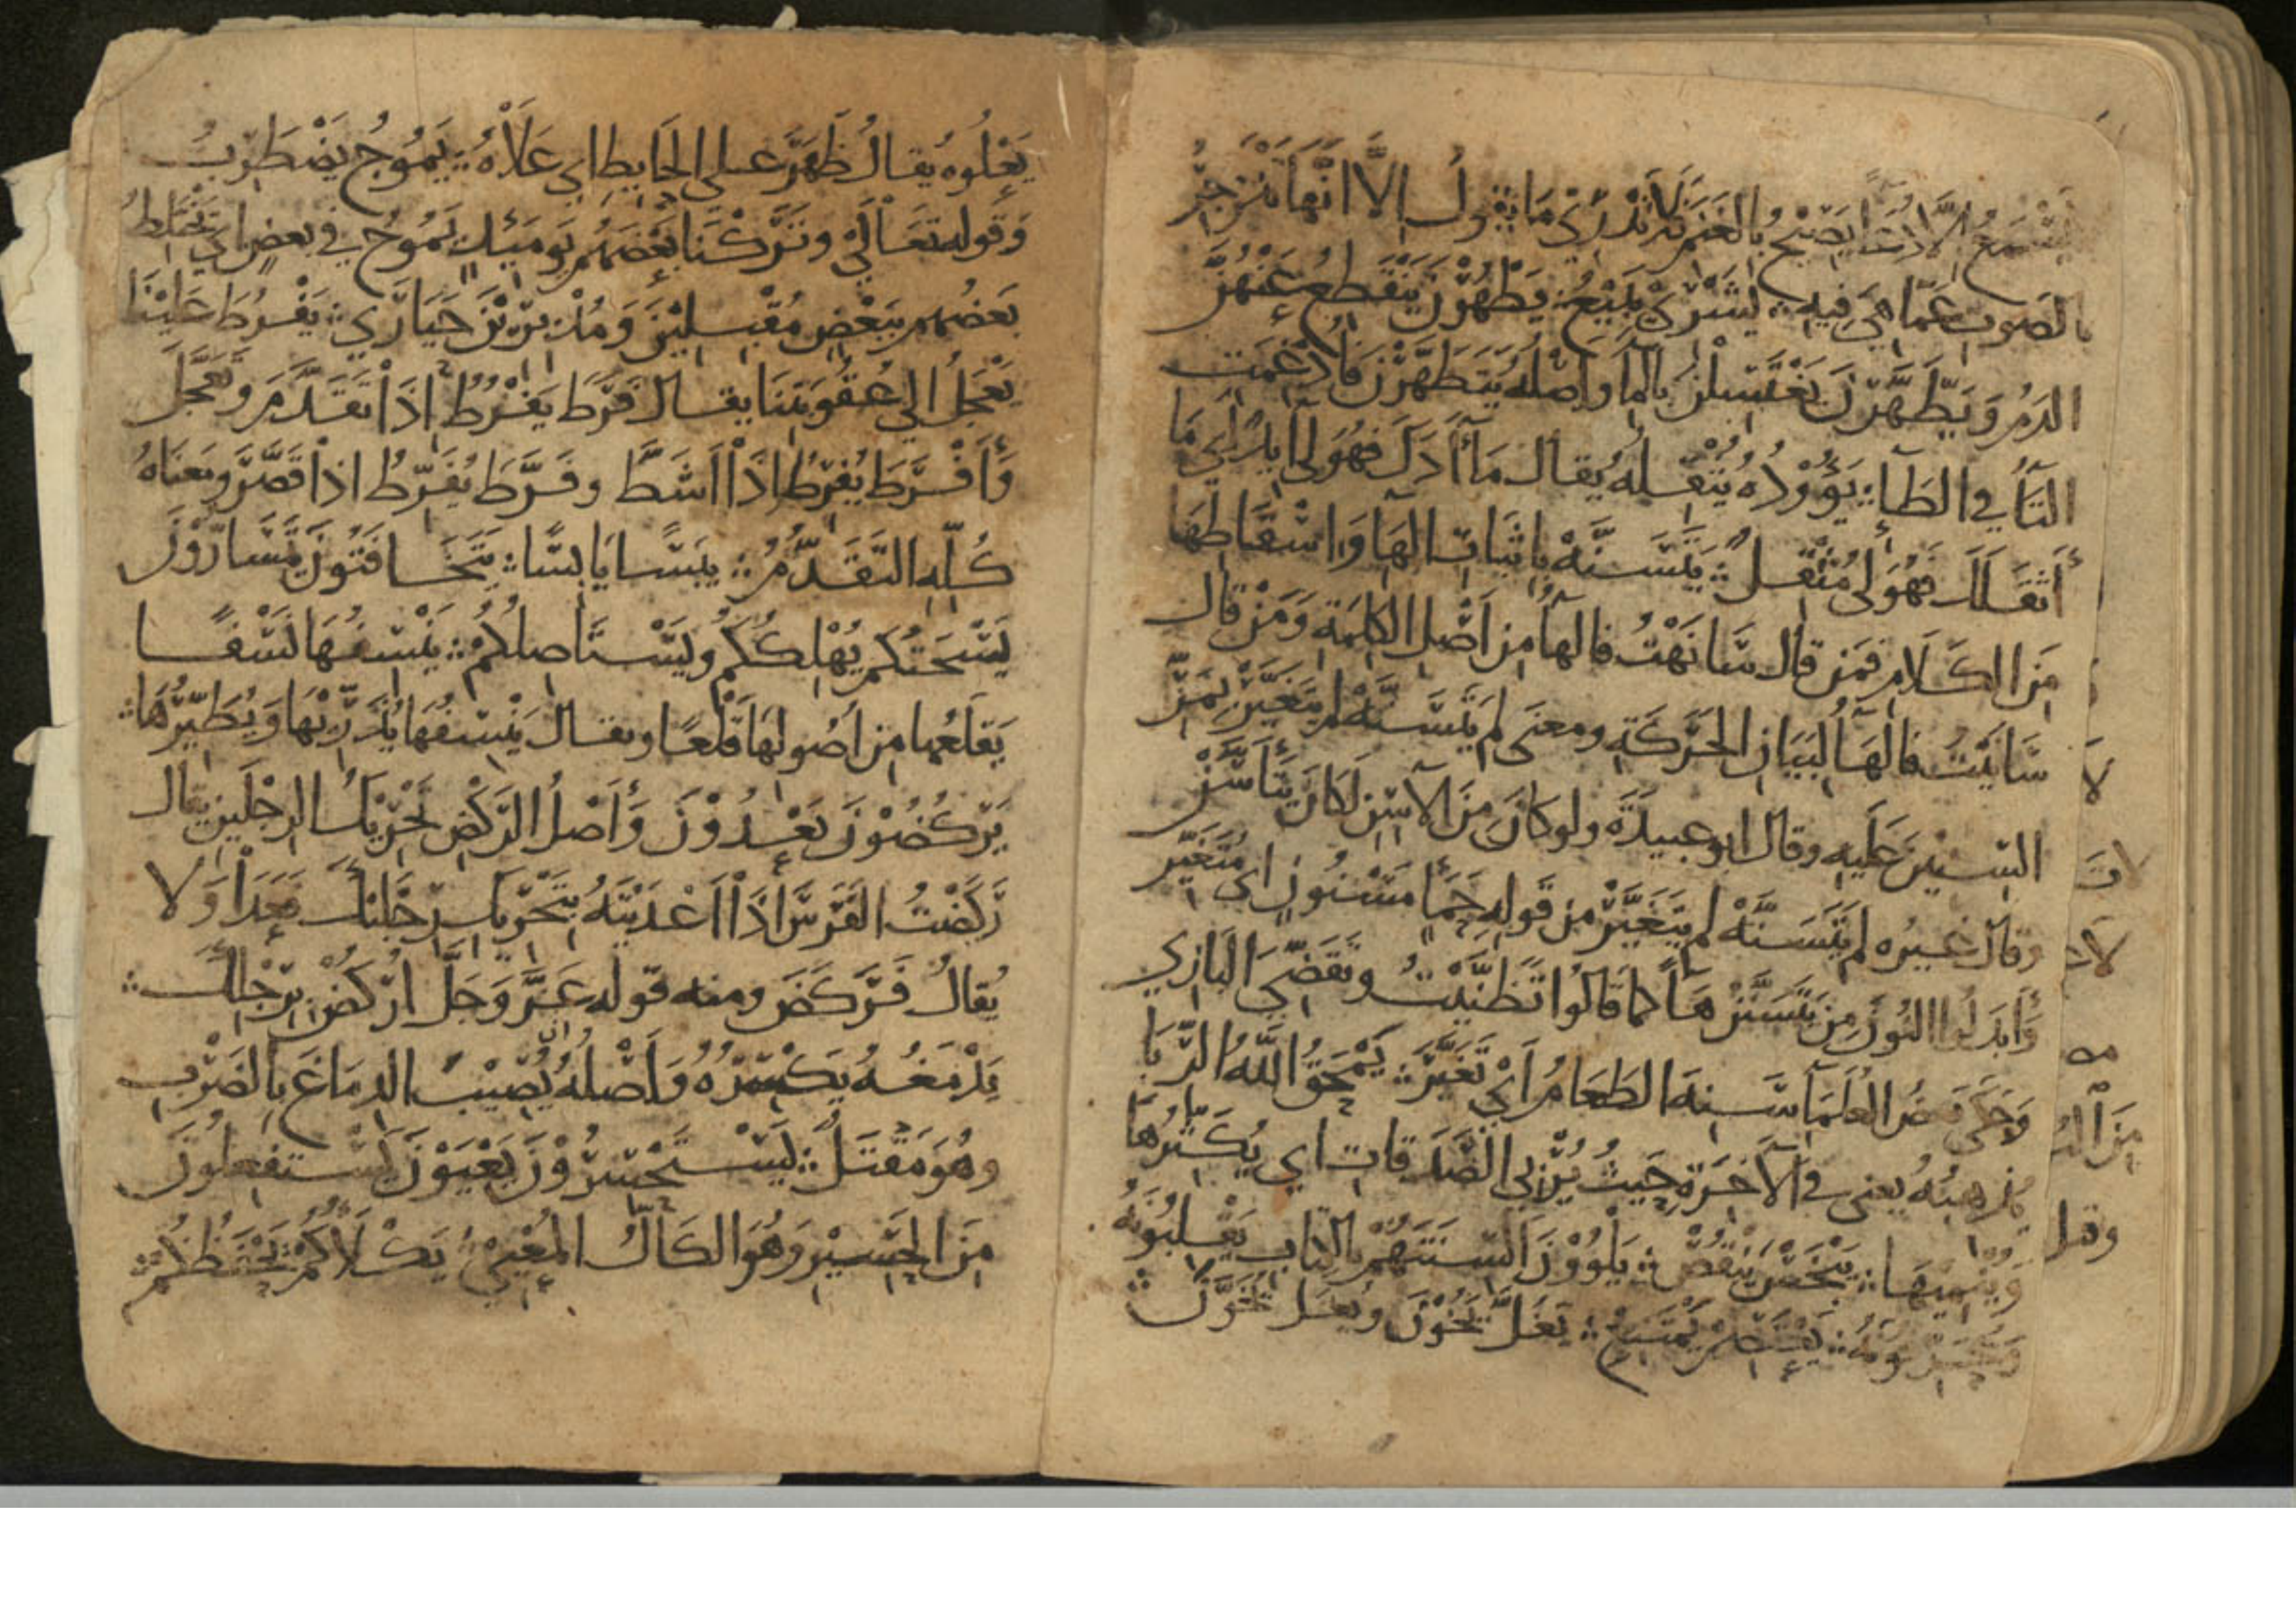 يصيح بالغنم فلا تدري ما يقول إلا انها تنزجر
بالصوت عما هي فيه ∴ يشري يبيع ∴ يطهرن ينقطع عنهن
الدم ويطهرن يغتسلن بالما واصله يتطهرن فادغمت
التا في الطا ∴ يؤوده يثقله يقال ما آدك فهو لي آيد اي ما
أثقلك فهو لي مثقل ∴ يتسنه باثبات الها واسقاطها
من الكلام فمن قال سانهت فالها من اصل الكلمة ومن قال
سانيت فالها لبيان الحركة ومعنى لم يتسنه لم يتغير بمر
السنين عليه وقال ابو عبيدة ولو كان من الآسن لكان يتأسن
وقال غيره لم يتسنه لم يتغير من قوله حمأ مسنون اي متغير
وأبدلوا النون من يتسنن هآ كما قالوا تظنيت وتقضي البازي
وحكى بعض العلمآ سنه الطعام أي تغير ∴ يمحق الله الربا
يذهبه يعني في الآخرة حيث يربي الصدقات اي يكثرها
وينميها ∴ يبخس ينقص ∴ يلوون السنتهم بالكتاب يقلبونه
ويحرفونه ∴ يعتصم يمتنع ∴ يغل يخون ويغل يخون ∴
لا
لا
من
وقل
يعلوه يقال ظهر على الحايط اي علاه ∴ يموج يضطرب
وقوله تعالى وتركنا بعضهم يوميذ يموج في بعض اي يختلط
بعضهم ببعض مقبلين ومدبرين حيارى ∴ يفرط علينا
يعجل الى عقوبتنا يقال فرط يفرط اذا تقدم وتعجل
وأفرط يفرط اذا اشط وفرط يفرط اذا قصر ومعناه
كله التقدم ∴ يبسا يابسا ∴ يتخافتون يتسارون
يسحتكم يهلككم ويستاصلكم ∴ ينسفها نسفا
يقلعها من اصولها قلعا ويقال ينسفها يذريها ويطيرها ∴
يركضون يعدون وأصل الركض تحريك الرجلين يقال
ركضت الفرس اذا اعديته بتحريك رجليك فعدا ولا
يقال فركض ومنه قوله عز وجل اركض برجلك ∴
يدمغه يكسره وأصله ان يصيب الدماغ بالضرب
وهو مقتل ∴ يستحسرون يعيون يستفعلون
من الحسير وهو الكال المعيي ∴ يكلأكم يحفظكم ∴